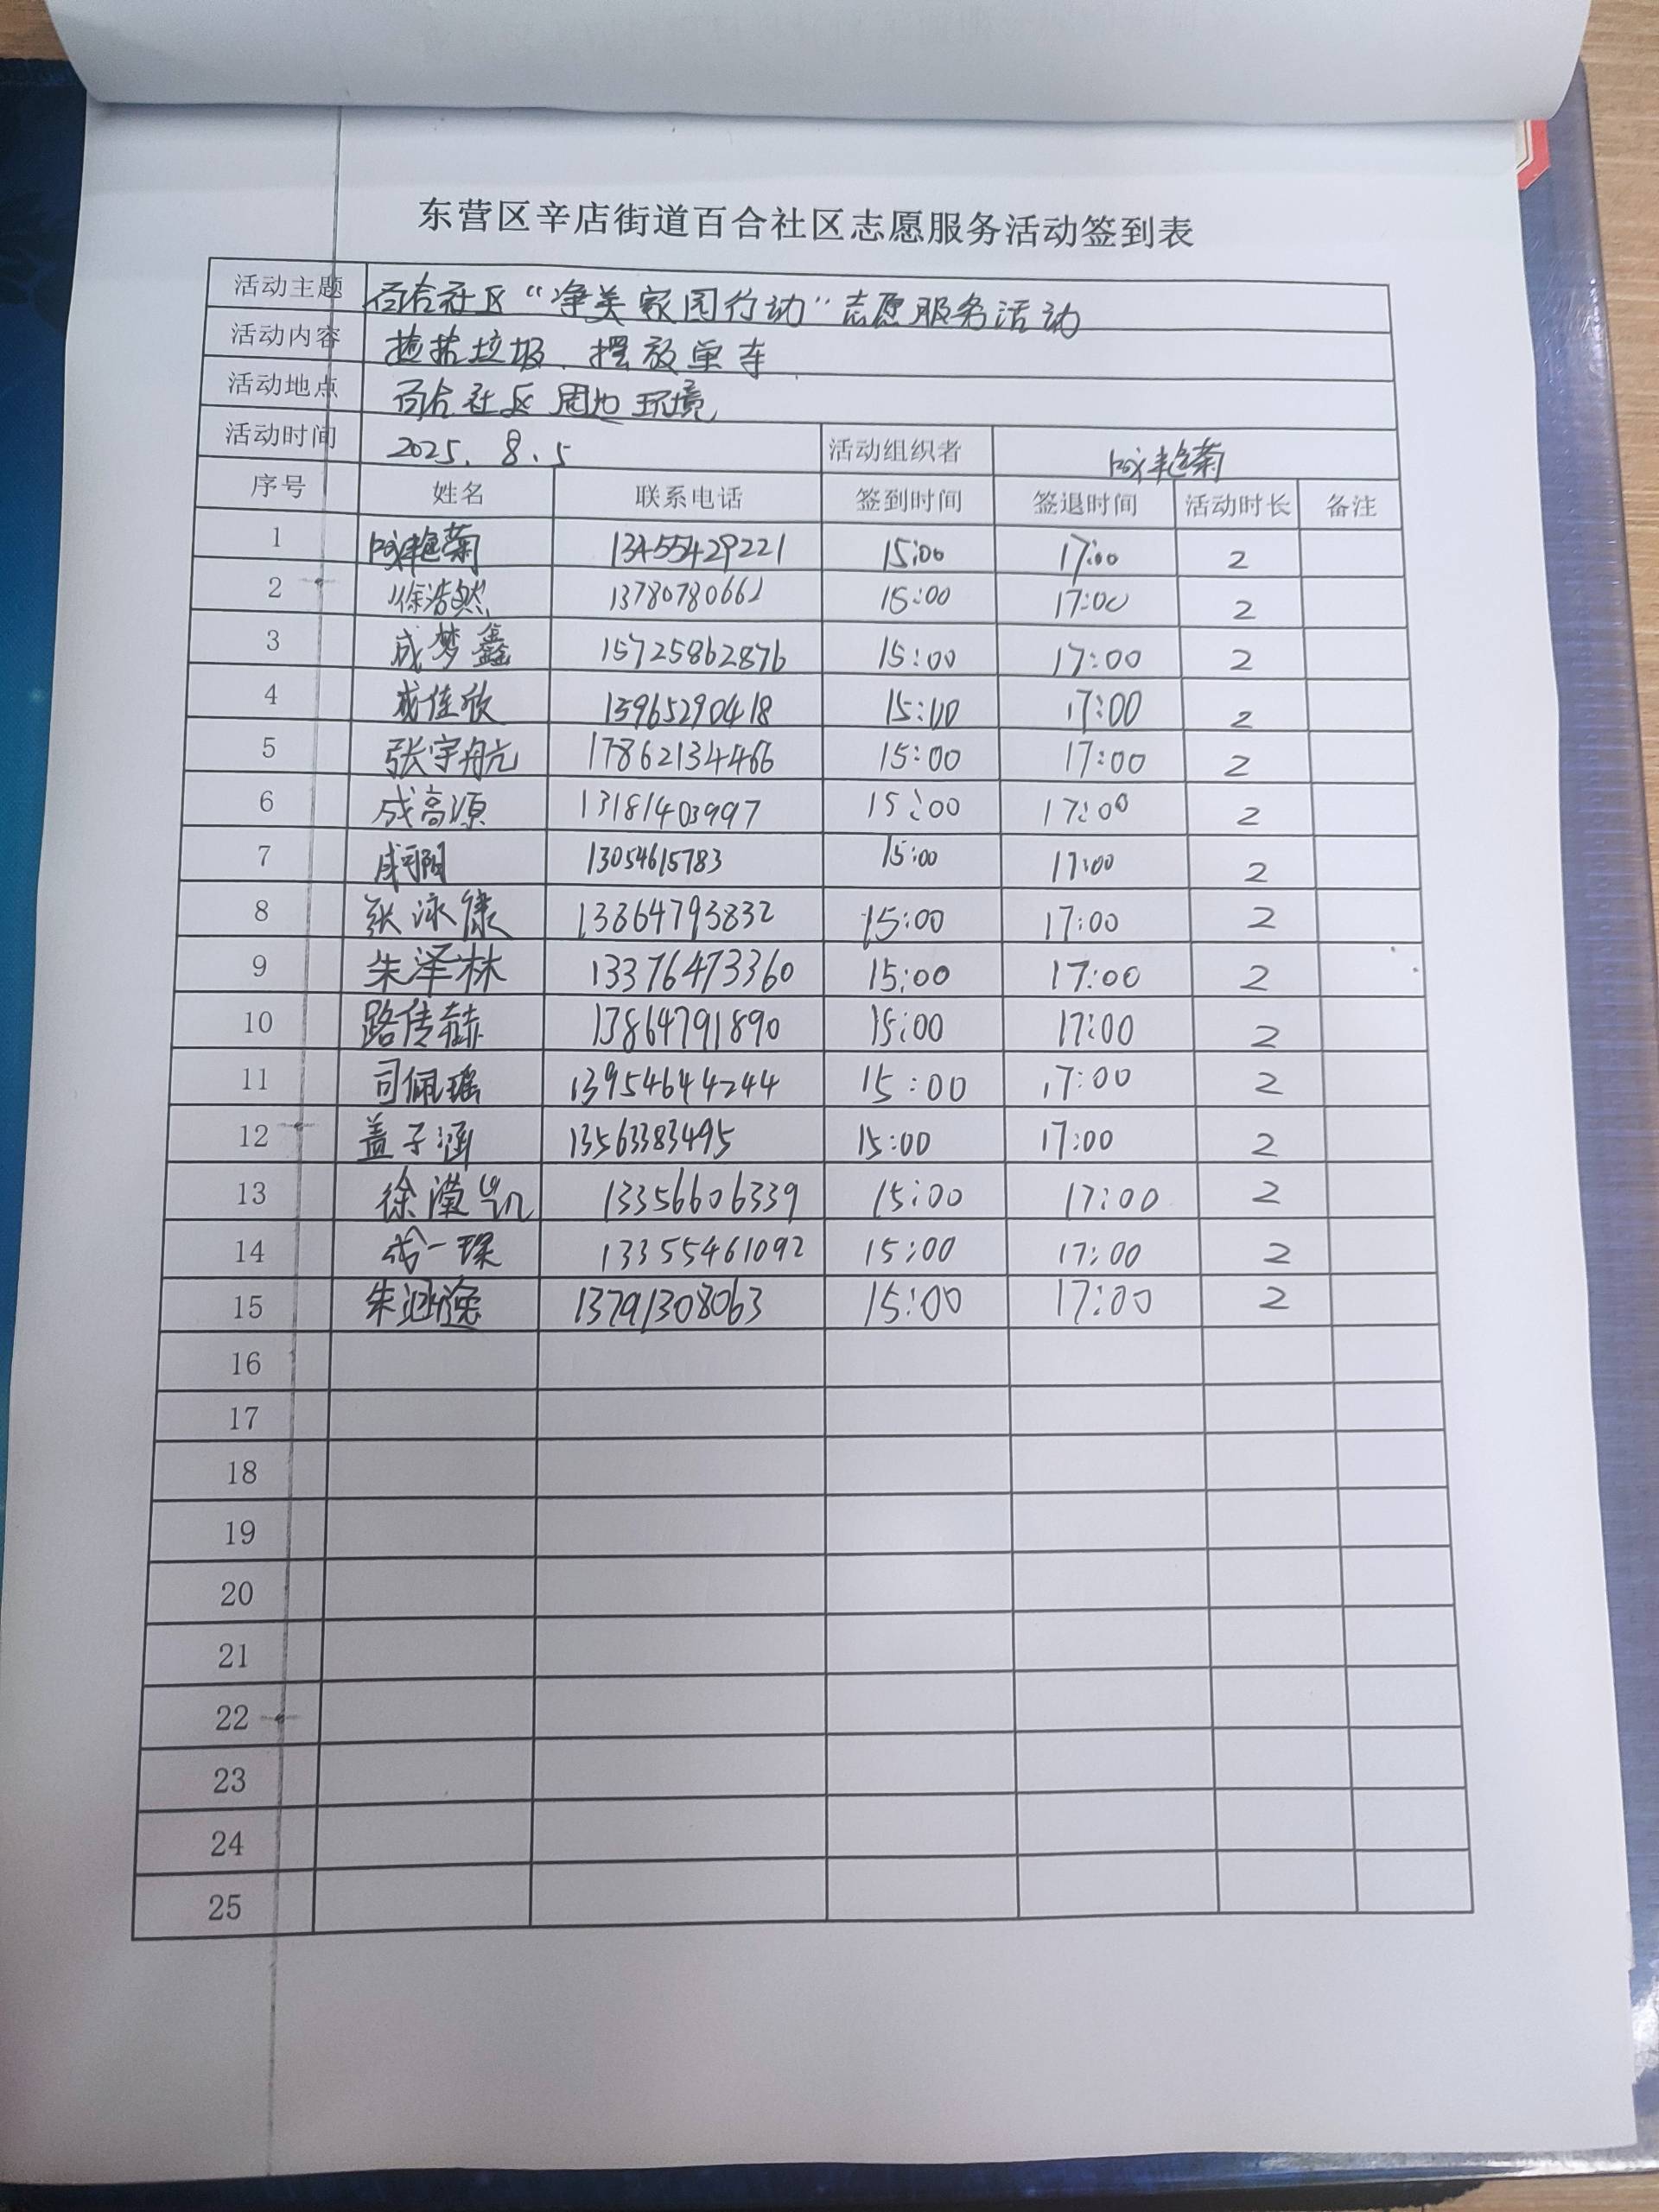 东营区辛店街道百合社区志愿服务活动签到表
活动主题 百合社区“净美家园行动”志愿服务活动
活动内容 捡拾垃圾、摆放单车
活动地点 百合社区周边环境
活动时间 2025.8.5 活动组织者 艳菊
序号 姓名 联系电话 签到时间 签退时间 活动时长 备注
1 艳菊 13455429221 15:00 17:00 2
2 徐浩然 13780780661 15:00 17:00 2
3 成梦鑫 15725862876 15:00 17:00 2
4 成佳欣 13965290418 15:00 17:00 2
5 张宇航 17862134466 15:00 17:00 2
6 成高源 13181403997 15:00 17:00 2
7 13054615783 15:00 17:00 2
8 张泳 13864793832 15:00 17:00 2
9 朱泽林 13376473360 15:00 17:00 2
10 路传赫 13864791890 15:00 17:00 2
11 司佩瑶 13954644244 15:00 17:00 2
12 盖子涵 13563383495 15:00 17:00 2
13 徐滢凯 13356606339 15:00 17:00 2
14 一璨 13355461092 15:00 17:00 2
15 朱涵逸 13791308063 15:00 17:00 2
16
17
18
19
20
21
22
23
24
25